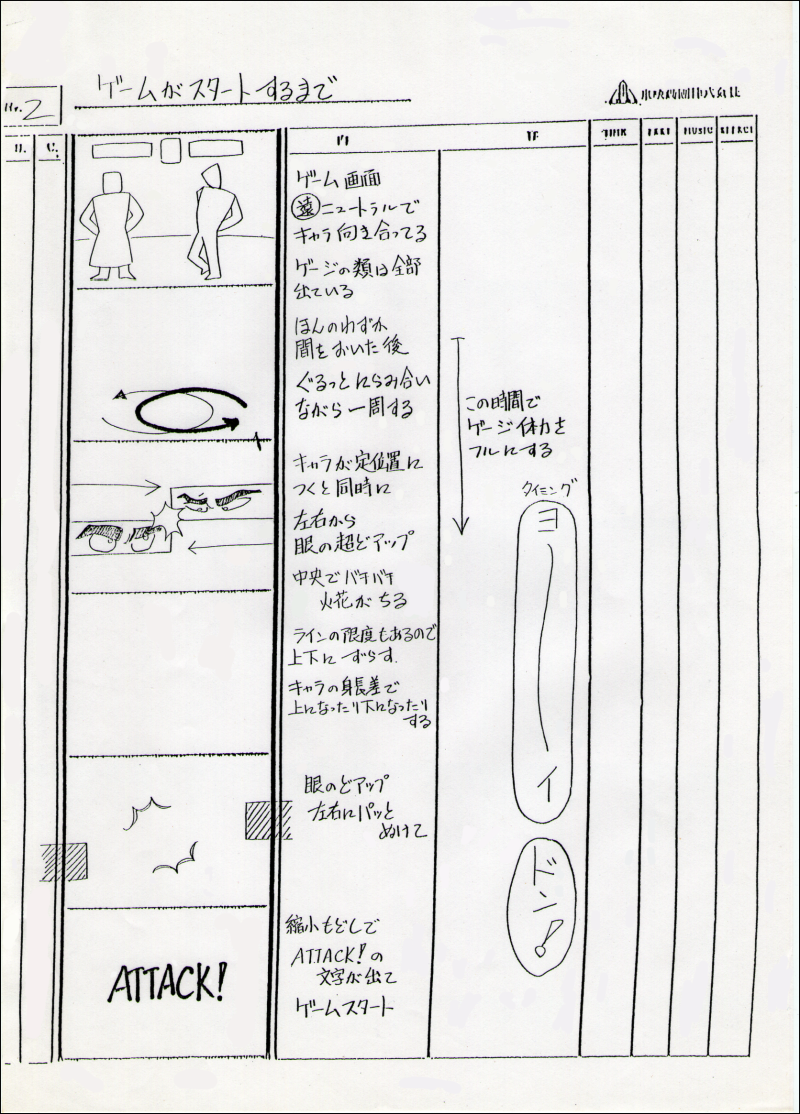 No. 2
ゲームがスタートするまで
ゲーム画面
遠ニュートラルで
キャラ向き合ってる
ゲージの類は全部
出ている
ほんのわずか
間をおいた後
ぐるっとにらみ合い
ながら一周する
キャラが定位置に
つくと同時に
左右から
眼の超どアップ
中央でバチバチ
火花がちる
ラインの限度もあるので
上下にずらす.
キャラの身長差で
上になったり下になったり
する
眼のどアップ
左右にパッと
ぬけて
縮小もどしで
ATTACK!の
文字が出て
ゲームスタート
この時間で
ゲージ体力を
フルにする
タイミング
ヨ
イ
ドン!
MUSIC
ATTACK!